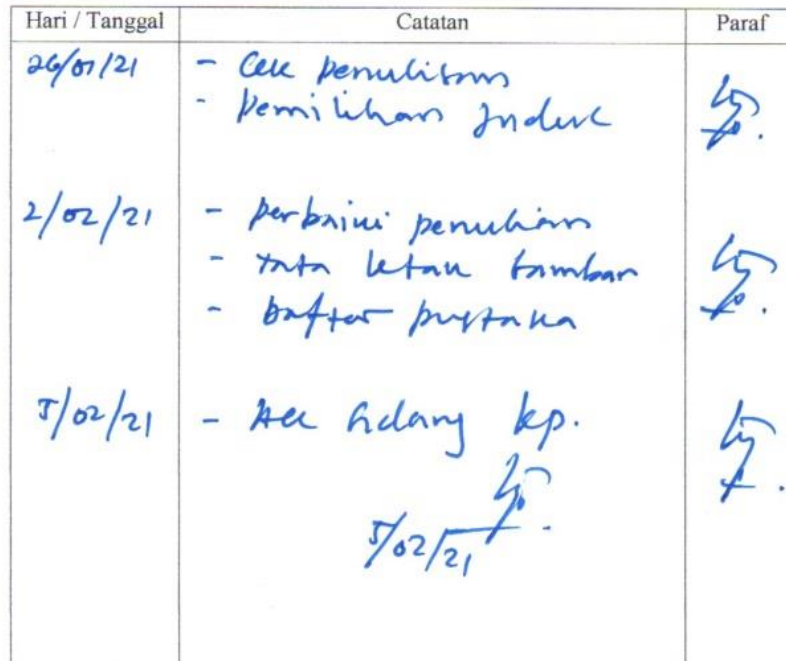 Hari / Tanggal Catatan Paraf
26/01/21 - Cek penulisan
- Pemilihan Induk
2/02/21 - perbaiki penulisan
- tata letak gambar
- Daftar pustaka
5/02/21 - Acc sidang kp.
5/02/21